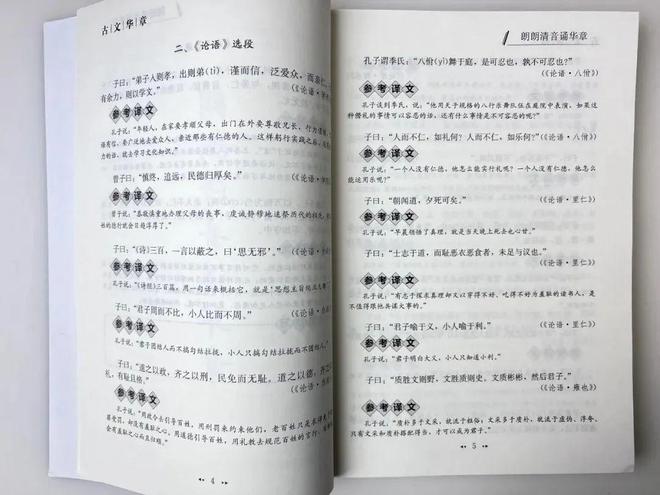 古文华章
二、《论语》选段
子曰：“弟子入则孝，出则弟(tì)，谨而信，泛爱众，而亲仁，
有余力，则以学文。”
参考译文
孔子说：“年轻人，在家要孝顺父母，出门在外要尊敬兄长，行为谨慎，
语有信，要广泛地去爱众人，亲近那些有仁德的人。这样躬行实践之后，
力的话，就去学习文化知识。”
曾子曰：“慎终，追远，民德归厚矣。”
参考译文
曾子说：“恭敬慎重地办理父母的丧事，虔诚静穆地追祭历代的祖先，
姓的德行就会日趋淳厚了。”
子曰：“《诗》三百，一言以蔽之，曰‘思无邪’。”《论语
参考译文
孔子说：“《诗经》三百篇，用一句话来概括它，就是‘思想主旨纯正
子曰：“君子周而不比，小人比而不周。”
参考译文
孔子说：“君子团结人而不搞勾结拉拢，小人只搞勾结拉拢而不团结
子曰：“道之以政，齐之以刑，民免而无耻。道之以德，齐
礼，有耻且格。”
参考译文
孔子说：“用政令去引导百姓，用刑罚来约束他们，老百姓只是
罪受罚，却没有羞耻之心。用道德引导百姓，用礼教去规范百姓的言行，
会有羞耻之心而且归顺。”
4
朗朗清音诵华章
孔子谓季氏：“八佾(yì)舞于庭，是可忍也，孰不可忍也？”
(《论语·八佾》)
参考译文
孔子谈到季氏，说：“他用天子规格的八行乐舞队伍在庭院中表演，如果这
种僭礼的事情可以容忍的话，还有什么事情是不可容忍的呢？”
子曰：“人而不仁，如礼何？人而不仁，如乐何？”(《论语·八佾》)
参考译文
孔子说：“一个人没有仁德，他怎么能实行礼呢？一个人没有仁德，他怎么
能运用乐呢？”
子曰：“朝闻道，夕死可矣。”
(《论语·里仁》)
参考译文
孔子说：“早晨领悟了真理，就是当天晚上死去也心甘。”
子曰：“士志于道，而耻恶衣恶食者，未足与议也。”
(《论语·里仁》)
参考译文
孔子说：“有志于探求真理却又以穿得不好、吃得不好为羞耻的读书人，是
不值得跟他共谋大事的。”
子曰：“君子喻于义，小人喻于利。”
(《论语·里仁》)
参考译文
孔子说：“君子明白大义，小人只知道小利。”
子曰：“质胜文则野，文胜质则史。文质彬彬，然后君子。”
(《论语·雍也》)
参考译文
孔子说：“质朴多于文采，就流于粗俗；文采多于质朴，就流于虚伪、浮夸。
只有文采和质朴搭配得当，才可以成为君子。”
5